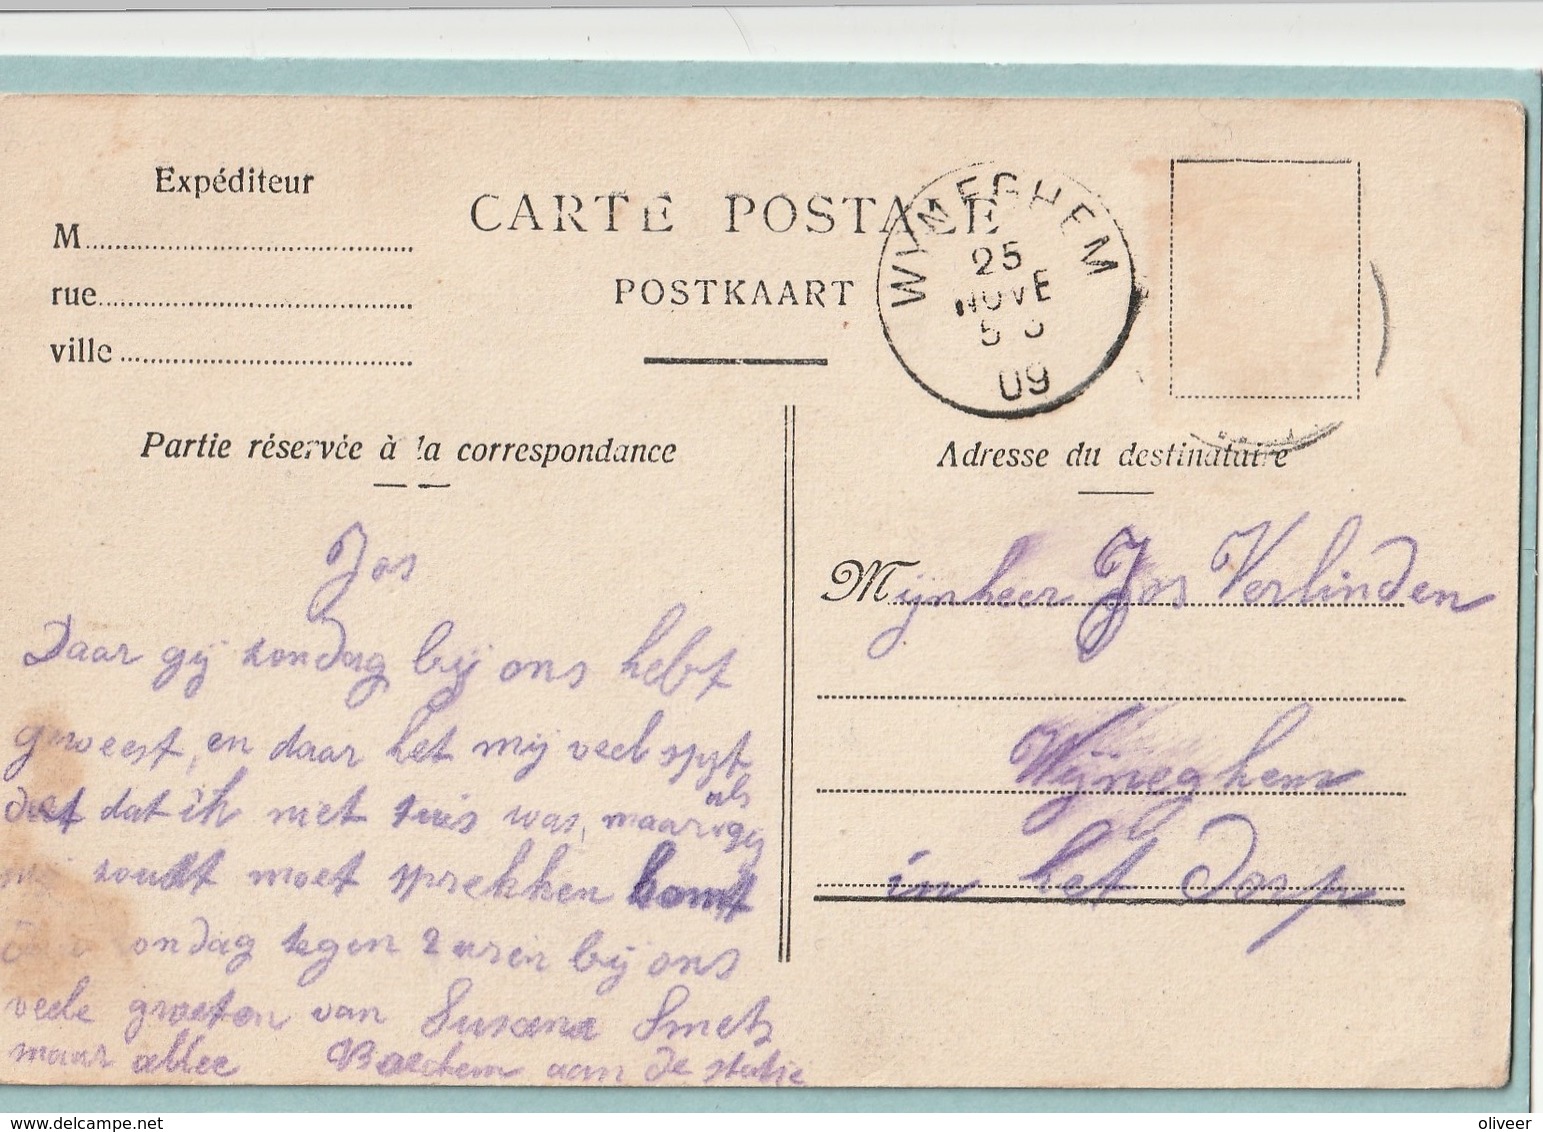 Expéditeur
M
rue
ville
CARTE POSTALE
POSTKAART
WYNEGHEM
25
NOVE
5
09
Partie réservée à la correspondance
Adresse du destinataire
Jos
Daar gij zondag bij ons hebt
geweest, en daar het mij veel spyt
doet dat ik niet tuis was, maar als gij
mij zoudt moet sprekken komt
ondag tegen 2 uren bij ons
veele groeten van Susana Smets
maar allee Boechem aan de statie
Mijnheer Jos Verlinden
Wijneghem
in het dorp
delcampe.net
oliveer